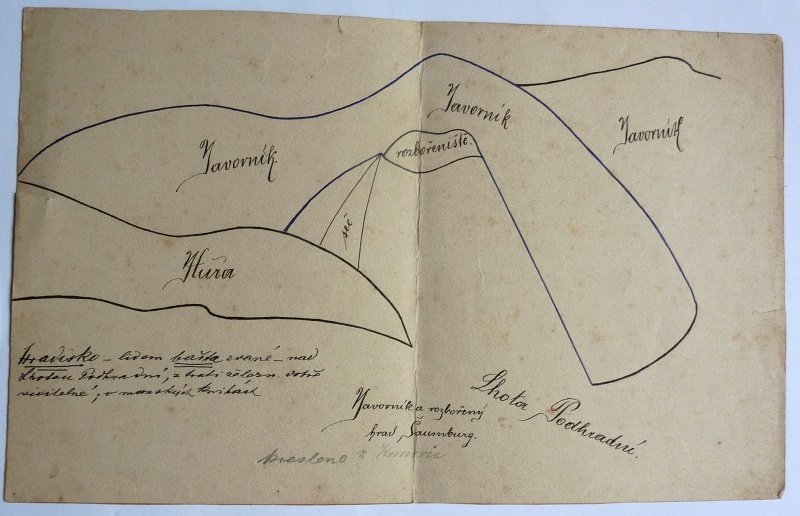 Javorník
Javorník
Javorník
rozbořeniště.
seč
Hradisko – lidem bašta zvané – nad
Lhotou Podhradní, z trati železn. dobře
viditelné, v menších knihách
Javorník a rozbořený
hrad Šaumburg.
Lhota Podhradní.
Kresleno z Kunovic